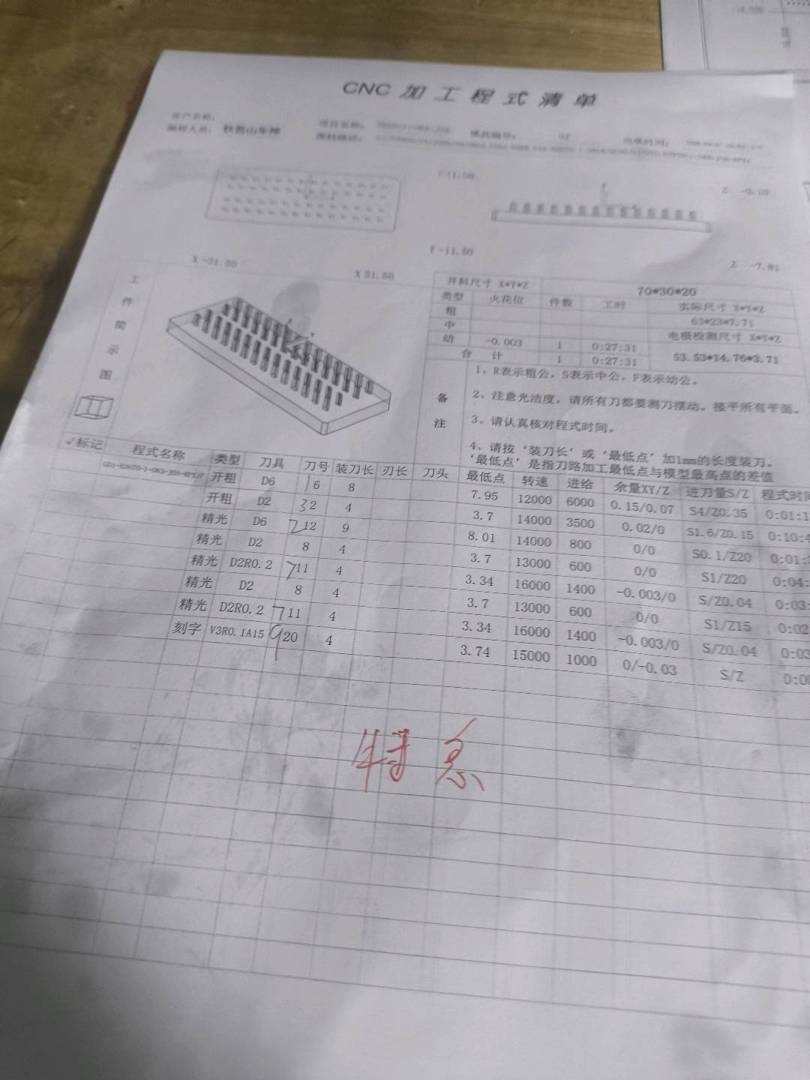 CNC 加 工 程 式 清 单
客户名称:
编程人员: 项目名称: 模具编号: 出单时间:
图档路径:
Y 11.50
Z -0.10
Y -11.50
Z -7.81
X -31.50
X 31.50
工件简示图
开料尺寸 X*Y*Z 70*30*20
类型 火花位 件数 工时 实际尺寸 X*Y*Z
粗 63*23*7.71
中 电极检测尺寸 X*Y*Z
幼 -0.003 1 0:27:31 53.53*14.76*3.71
合 计 1 0:27:31
备注
1、R表示粗公，S表示中公，F表示幼公。
2、注意光洁度，请所有刀都要测刀摆动。接平所有平面。
3、请认真核对程式时间。
4、请按‘装刀长’或‘最低点’加1mm的长度装刀。
‘最低点’是指刀路加工最低点与模型最高点的差值
√标记 程式名称 类型 刀具 刀号 装刀长 刃长 刀头 最低点 转速 进给 余量XY/Z 进刀量S/Z 程式时间
开粗 D6 1 6 8 7.95 12000 6000 0.15/0.07 S4/Z0.35 0:01:1
开粗 D2 3 2 4 3.7 14000 3500 0.02/0 S1.6/Z0.15 0:10:4
精光 D6 2 12 9 8.01 14000 800 0/0 S0.1/Z20 0:01:
精光 D2 8 4 3.7 13000 600 0/0 S1/Z20 0:04:
精光 D2R0.2 7 11 4 3.34 16000 1400 -0.003/0 S/Z0.04 0:03:
精光 D2 8 4 3.7 13000 600 0/0 S1/Z15 0:02
精光 D2R0.2 7 11 4 3.34 16000 1400 -0.003/0 S/Z0.04 0:03
刻字 V3R0.1A15 9 20 4 3.74 15000 1000 0/-0.03 S/Z 0:00
特急